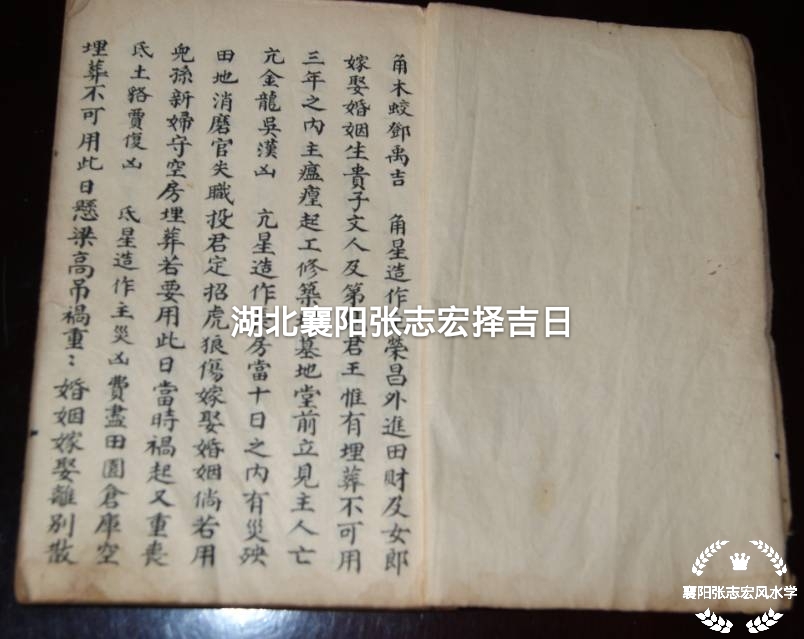 角木蛟鄧禹吉　角星造作榮昌外進田财及女郎
嫁娶婚姻生貴子文人及第君王惟有埋葬不可用
三年之內主瘟癀起工修築墓地堂前立見主人亡
亢金龍吳漢凶　亢星造作房當十日之內有災殃
田地消磨官失職投君定招虎狼傷嫁娶婚姻倘若用
兒孫新婦守空房埋葬若要用此日當時禍起又重喪
氐土貉賈復凶　氐星造作主災凶費盡田園倉庫空
埋葬不可用此日懸梁高吊禍重：婚姻嫁娶離別散
湖北襄阳张志宏择吉日
襄阳张志宏风水学